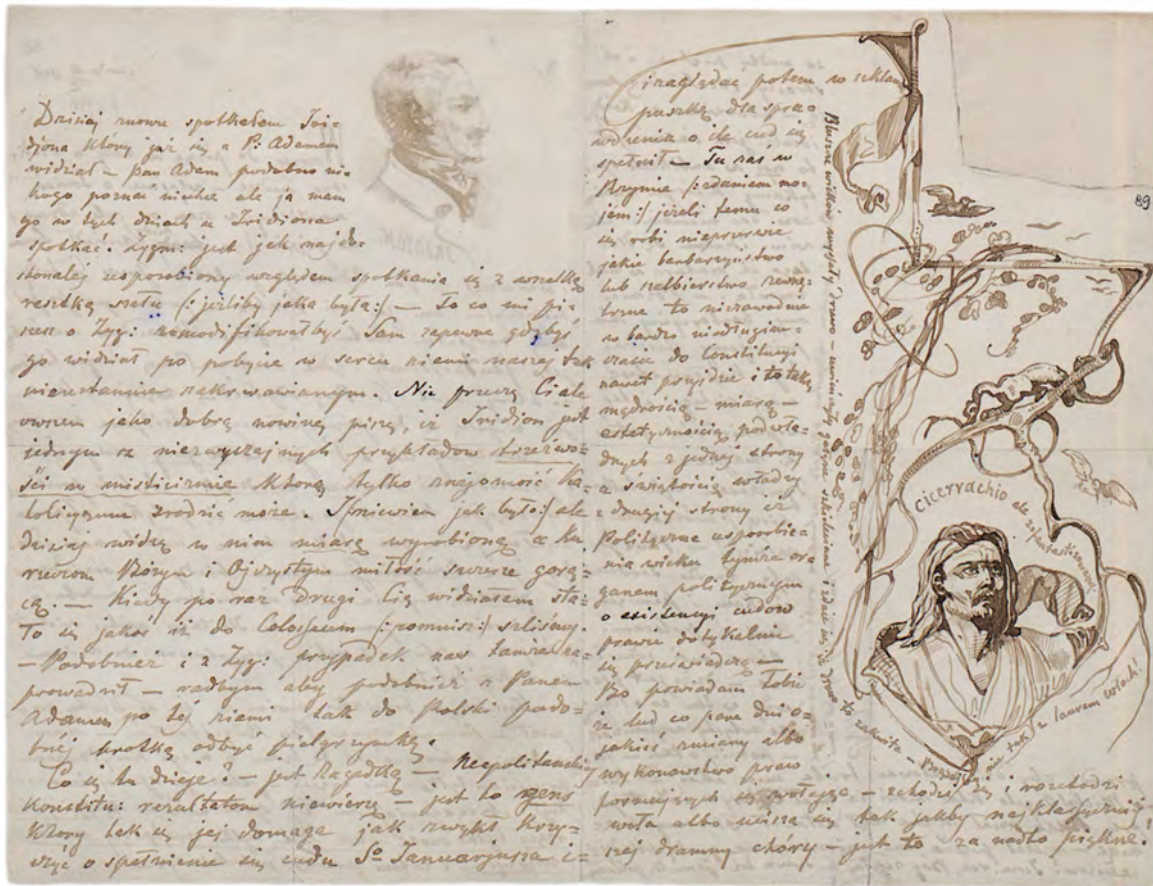 Dzisiaj znowu spotkałem Iri=
djona który już się z P: Adamem
widział – Pan Adam podobno ni=
kogo poznać niechce ale ja mam
go w tych dniach u Iridiona
spotkać. Zygm: jest jak najdo=
skonalej usposobiony względem spotkania się z wszelką
resztką szału (: jeżliby jaka była :) – To co mi pi=
szesz o Zyg: zamodifikowałbyś Sam zapewne gdybyś
go widział po pobycie w sercu ziemi naszej tak
nieustannie zakrwawionym. Nic przeczę Ciale
owszem jako dobrą nowinę piszę, iż Iridion jest
jednym z niezwyczajnych przykładów trzeźwo=
ści w misticizmie którą tylko znajomość ka=
tolicyzmu zrodzić może. (: niewiem jak było :) ale
dzisiaj widzę w nim miarę wyrobioną a ku
rzeczom Bożym i Ojczystym miłość zawsze gorą=
cą. – Kiedy po raz drugi Cię widziałem sta=
ło się jakoś iż do Colosseum (: pomnisz :) szliśmy.
– Podobnież i z Zyg: przypadek nas tam za=
prowadził – radbym aby podobnież z Panem
Adamem po tej ziemi tak do Polski podo=
bnéj krotką odbyć pielgrzymkę.
Co się tu dzieje? – jest zagadką – Neapolitańskiéj
Konstitu: rezultatom niewierzę – jest to
który tak się jej domaga jak zwykł krzy=
czéć o spełnienie się cudu So Januarjusza i=
i zaglądać potem w szklan
puszkę dla spra=
wdzenia o ile cud się
spełnił – Tu zaś w
Rzymie (: zdaniem mo=
jem :) jeżeli temu co
się robi nieprzerwie
jakie barbarzyństwo
lub szelbierstwo zewnę=
trzne to niezawodnie
w bardzo niedługim=
czasie do Constitucyi
nawet przyjdzie i to taką
mądrością – miarą –
estetycznością podwła=
dnych z jednej strony
a świętością władzy
z drugiéj strony iż
Polityczne usposobie=
nia wieku tymże or=
ganem politycznym
o existencyi cudów
prawie dotykalnie
się przeświadczą –
Bo powiadam Tobie
że lud co parę dni o=
jakieś zmiany albo
wykonawstwo praw
wołając – schodzi się i rozchodzi
woła albo ucisza się tak jakby najklassyczniéj=
szej drammy chóry – jest to za nadto piękne.
Bluszcz wilków wyssysał drzewo – uwinięty gałęzie i zdaie się że drzewo to zakwita – nie tak z laurem włoch!
Ciceryachio ale zfantastizowany
89